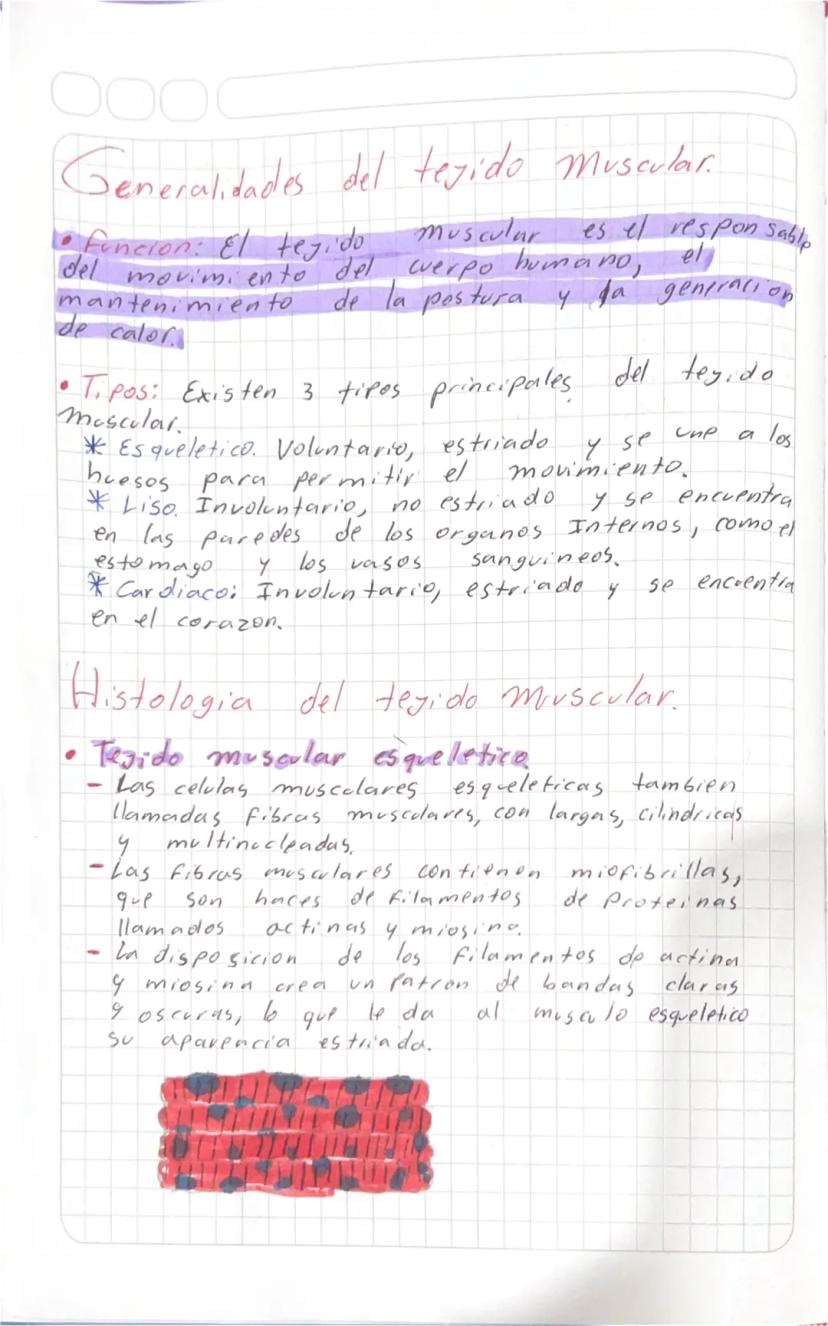 Generalidades del tejido muscular.
• Funcion: El tejido muscular es el responsable
del movimiento del cuerpo humano, el
mantenimiento de la postura y la generacion
de calor.
• Tipos: Existen 3 tipos principales del tejido
muscular.
* Esqueletico. Voluntario, estriado y se une a los
huesos para permitir el movimiento.
* Liso. Involuntario, no estriado y se encuentra
en las paredes de los organos Internos, como el
estomago y los vasos sanguineos.
* Cardiaco: Involuntario, estriado y se encuentra
en el corazon.
Histologia del tejido muscular.
• Tejido muscular esqueletico
- Las celulas musculares esqueleticas tambien
llamadas fibras musculares, con largas, cilindricas
y multinucleadas.
- Las fibras musculares contienen miofibrillas,
que son haces de filamentos de proteinas
llamados actinas y miosina.
- La disposicion de los filamentos de actina
y miosina crea un patron de bandas claras
y oscuras, lo que le da al musculo esqueletico
su aparencia estriada.